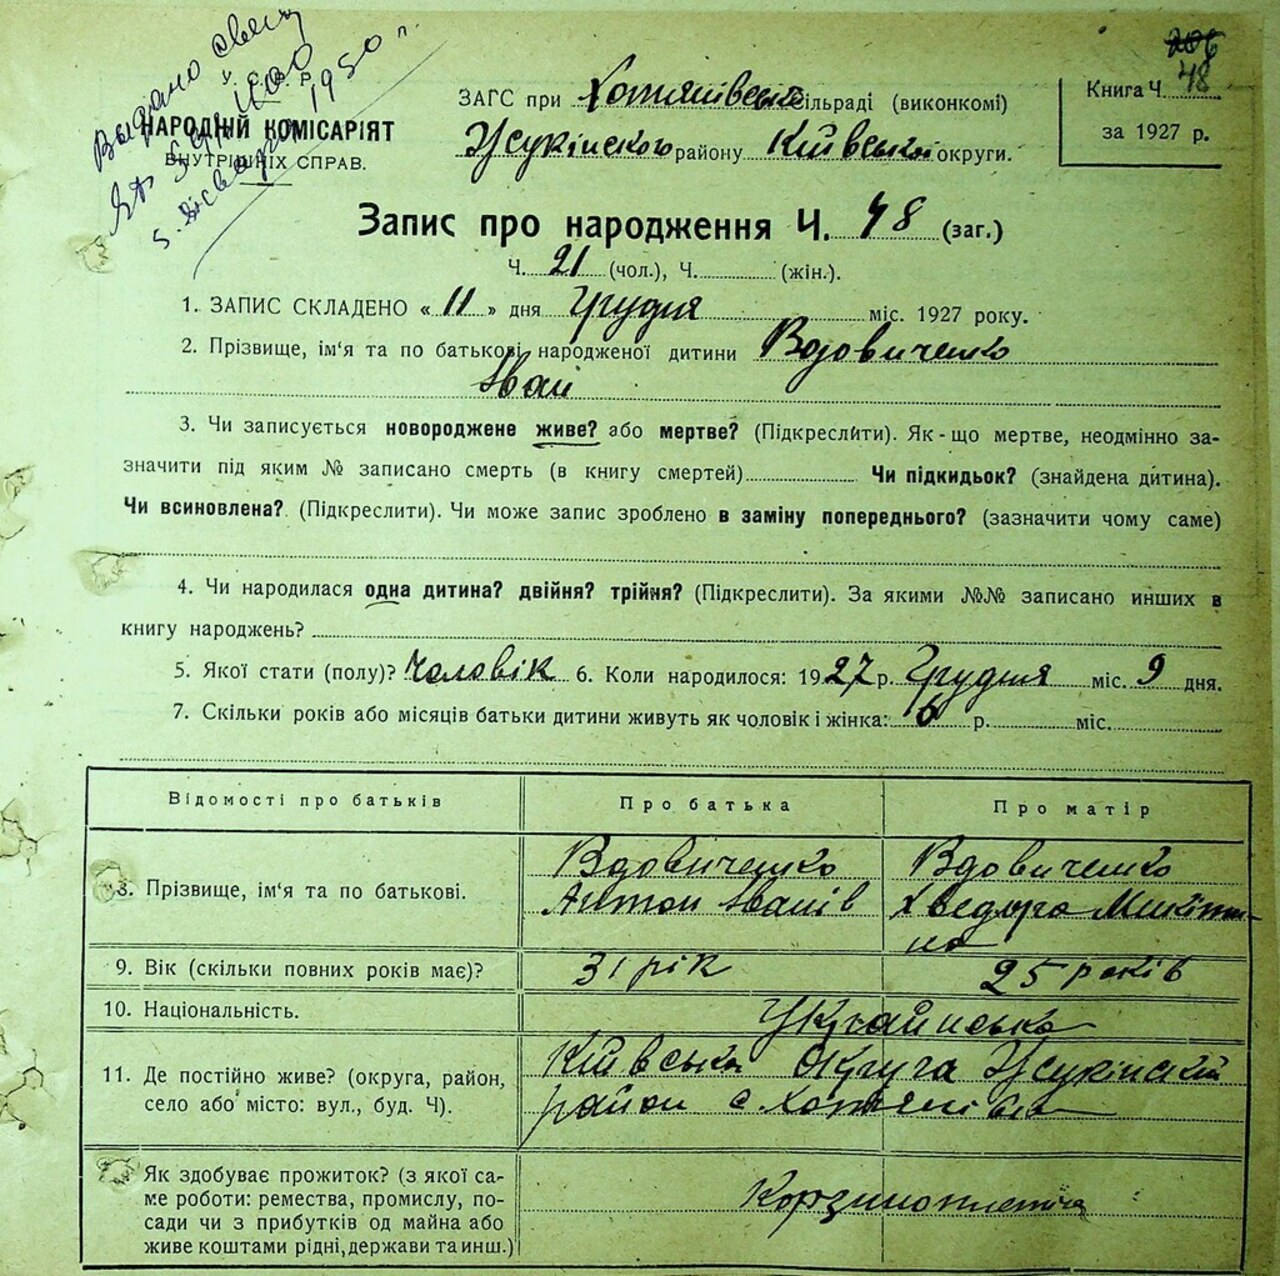 Выдано свид
1950 г.
У. С. Р. Р.
НАРОДНІЙ КОМІСАРІЯТ
ВНУТРІШНІХ СПРАВ.
ЗАГС при Хотянівській сільраді (виконкомі)
району Київської округи.
48
Книга Ч.
за 1927 р.
Запис про народження Ч. 48 (заг.)
Ч. 21 (чол.), Ч. (жін.).
1. ЗАПИС СКЛАДЕНО « 11 » дня Грудня міс. 1927 року.
2. Прізвище, ім'я та по батькові народженої дитини Вдовиченко
Іван
3. Чи записується новороджене живе? або мертве? (Підкреслити). Як-що мертве, неодмінно за-
значити під яким № записано смерть (в книгу смертей) Чи підкидьок? (знайдена дитина).
Чи всиновлена? (Підкреслити). Чи може запис зроблено в заміну попереднього? (зазначити чому саме)
4. Чи народилася одна дитина? двійня? трійня? (Підкреслити). За якими №№ записано инших в
книгу народжень?
5. Якої стати (полу)? Чоловік 6. Коли народилося: 1927 р. Грудня міс. 9 дня.
7. Скільки років або місяців батьки дитини живуть як чоловік і жінка: 6 р. міс.
Відомості про батьків Про батька Про матір
8. Прізвище, ім'я та по батькові. Вдовиченко Антон Іванів Вдовиченко Хведора Микіти-
на
9. Вік (скільки повних років має)? 31 рік 25 років
10. Національність. Українська
11. Де постійно живе? (округа, район, село або місто: вул., буд. Ч). Київська Округа
район с. Хотянівка
Як здобуває прожиток? (з якої са-
ме роботи: ремества, промислу, по-
сади чи з прибутків од майна або
живе коштами рідні, держави та инш.)